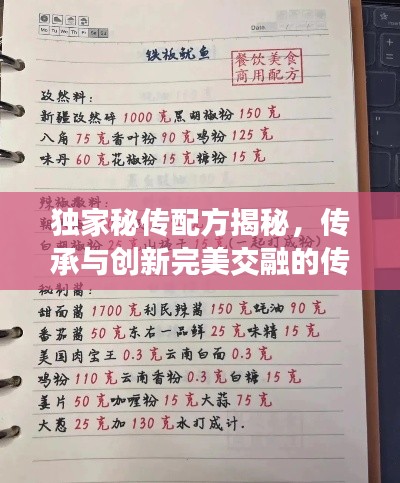 Mo Tu We Th Fr Sa Su
Date
铁板鱿鱼
餐饮美食
商用配方
孜然料：
新疆孜然碎 1000 克黑胡椒粉 150 克
八角 75 克香叶粉 90 克鸡粉 125 克
味丹 60 克花椒粉 15 克糖粉 15 克
独家秘传配方揭秘，传
承与创新完美交融的传
秘制酱：
甜面酱 1700 克利民辣酱 150 克蚝油 90 克
番茄酱 50 克东古一品鲜 25 克味精 15 克
美国肉宝王 0.3 克云南白面 0.3 克
鸡粉 110 克云南香粉 0.3 克白糖 15 克
姜片 50 克咖喱粉 15 克大蒜 75 克
大葱 25 克加 130 克水打成汁.